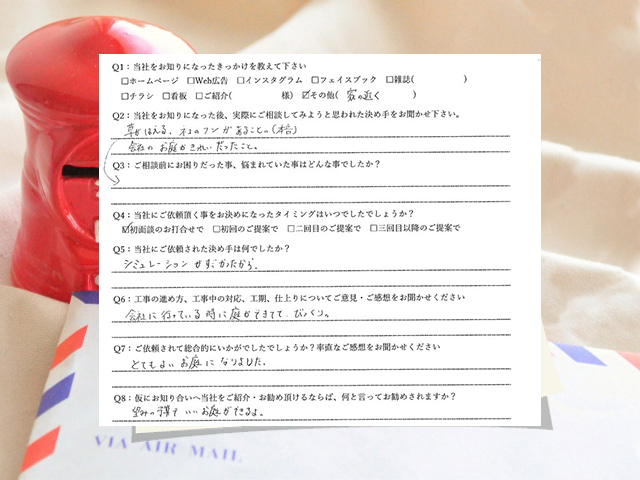 Q1：当社をお知りになったきっかけを教えて下さい
□ホームページ □Web広告 □インスタグラム □フェイスブック □雑誌( )
□チラシ □看板 □ご紹介( 様) ☑その他( 家の近く )
Q2：当社をお知りになった後、実際にご相談してみようと思われた決め手をお聞かせ下さい。
草がはえる、ネコのフンがあることの
会社のお庭がきれいだったこと。
Q3：ご相談前にお困りだった事、悩まれていた事はどんな事でしたか？
Q4：当社にご依頼頂く事をお決めになったタイミングはいつでしたでしょうか？
☑初面談のお打合せで □初回のご提案で □二回目のご提案で □三回目以降のご提案で
Q5：当社にご依頼された決め手は何でしたか？
シミュレーションがすごかったから。
Q6：工事の進め方、工事中の対応、工期、仕上りについてご意見・ご感想をお聞かせください
会社に行っている時に庭ができてて、びっくり。
Q7：ご依頼されて総合的にいかがでしたでしょうか？率直なご感想をお聞かせください
とてもよいお庭になりました。
Q8：仮にお知り合いへ当社をご紹介・お勧め頂けるならば、何と言ってお勧めされますか？
望みの様ないいお庭ができるよ。
VIA AIR MAIL